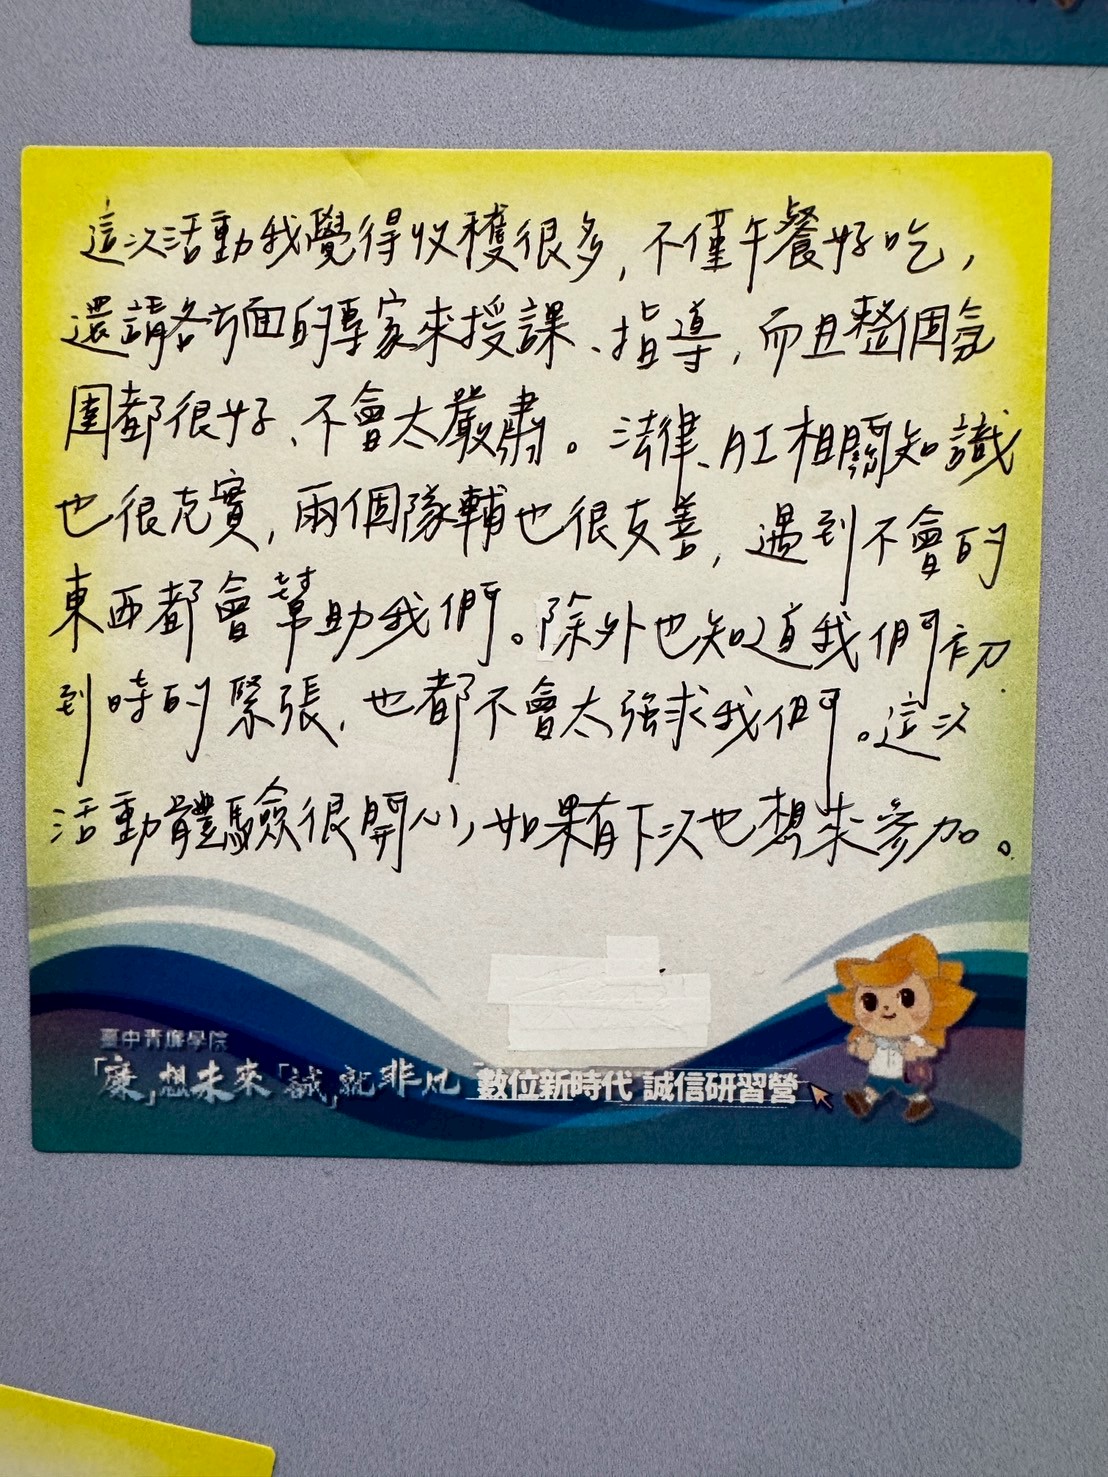 這次活動我覺得收穫很多,不僅午餐好吃,
還請各方面的專家來授課、指導,而且整個氛
圍都很好、不會太嚴肅。法律、AI相關知識
也很充實,兩個隊輔也很友善,遇到不會的
東西都會幫助我們。除外也知道我們初
到時的緊張,也都不會太強求我們。這次
活動體驗很開心,如果有下次也想來參加。
臺中青廉學院
「廉」想未來「誠」就非凡 數位新時代 誠信研習營